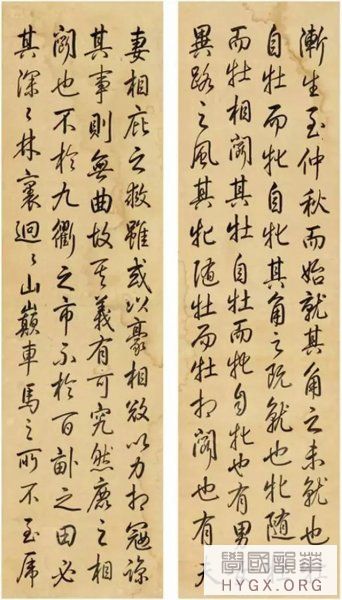 漸生至仲秋而始就其角之未就也
自牡而牝自牝其角之既就也牝随
而牡相闘其牡自牡而牝自牝也有男
異路之風其牝随牡而牡相闘也有夫
妻相庇之救雖或以豪相以力相寇諒
其事則無曲故其義有可究然鹿之相
闘也不於九衢之市不於百畝之田必
其深〻林裏迥〻山巔車馬之所不至虎
學國韻華
HYGX.ORG.CN